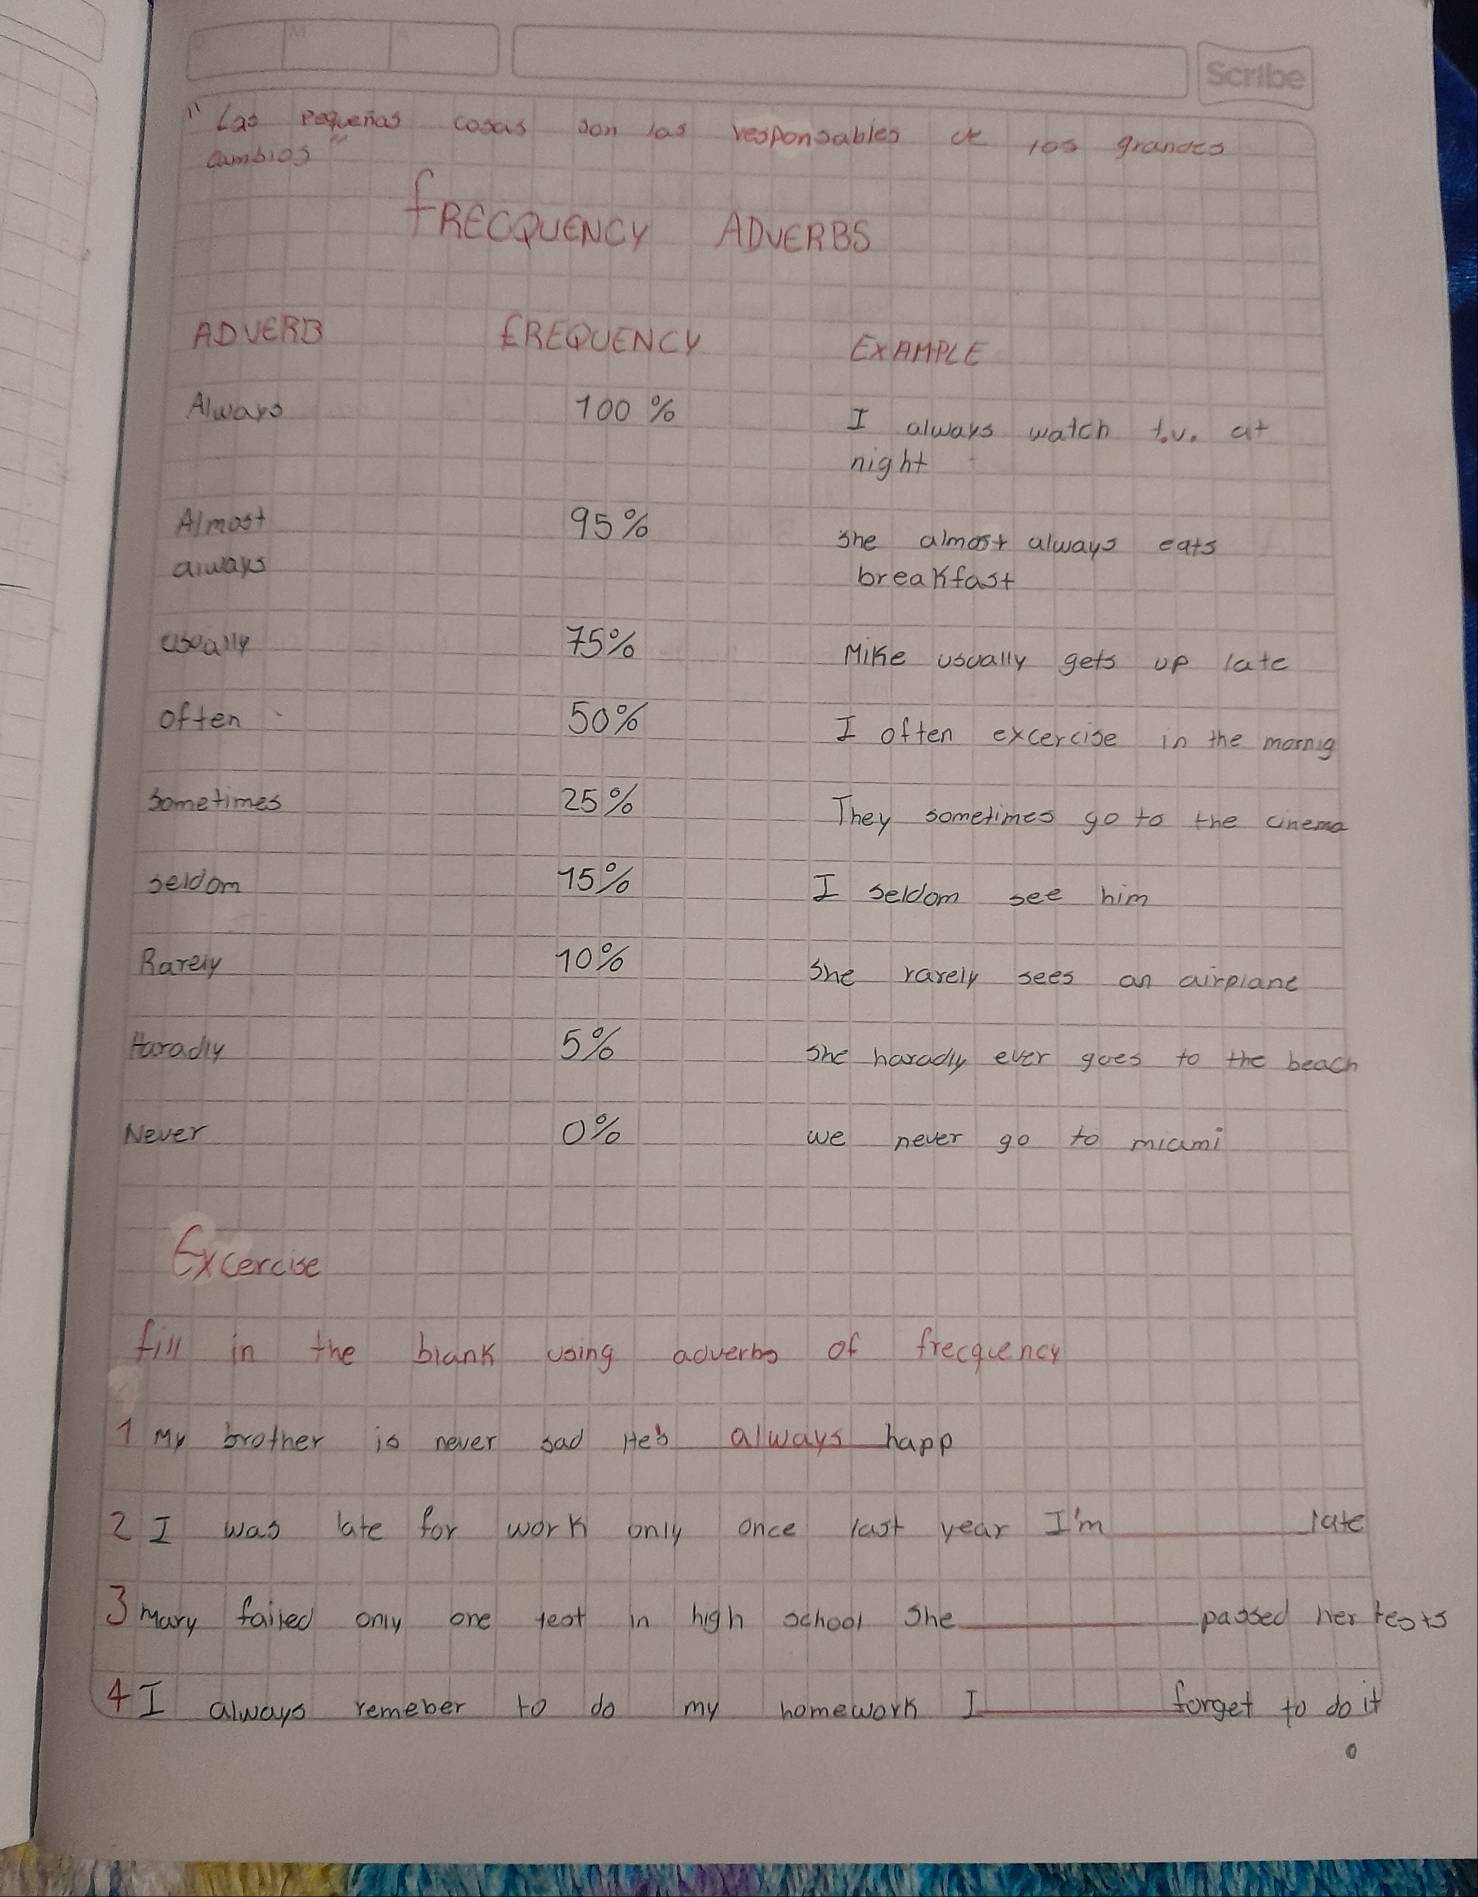 Scribe
"Las pequeñas cosas son las responsables de los grandes
cambios"
FRECQUENCY ADVERBS
ADVERB FREQUENCY EXAMPLE
Always 100% I always watch t.v. at
night
Almost 95% She almost always eats
always breakfast
usually 75% Mike usually gets up late
often 50% I often excercise in the mornig
sometimes 25% They sometimes go to the cinema
seldom 15% I seldom see him
Rarely 10% She rarely sees an airplane
Haradly 5% She haradly ever goes to the beach
Never 0% we never go to miami
Excercise
fill in the blank using adverbs of frecquency
1 My brother is never sad He's always happ
2 I was late for work only once last year I'm ________ late
3 Mary failed only one test in high school She ________ passed her tests
4 I always remeber to do my homework I ________ forget to do it